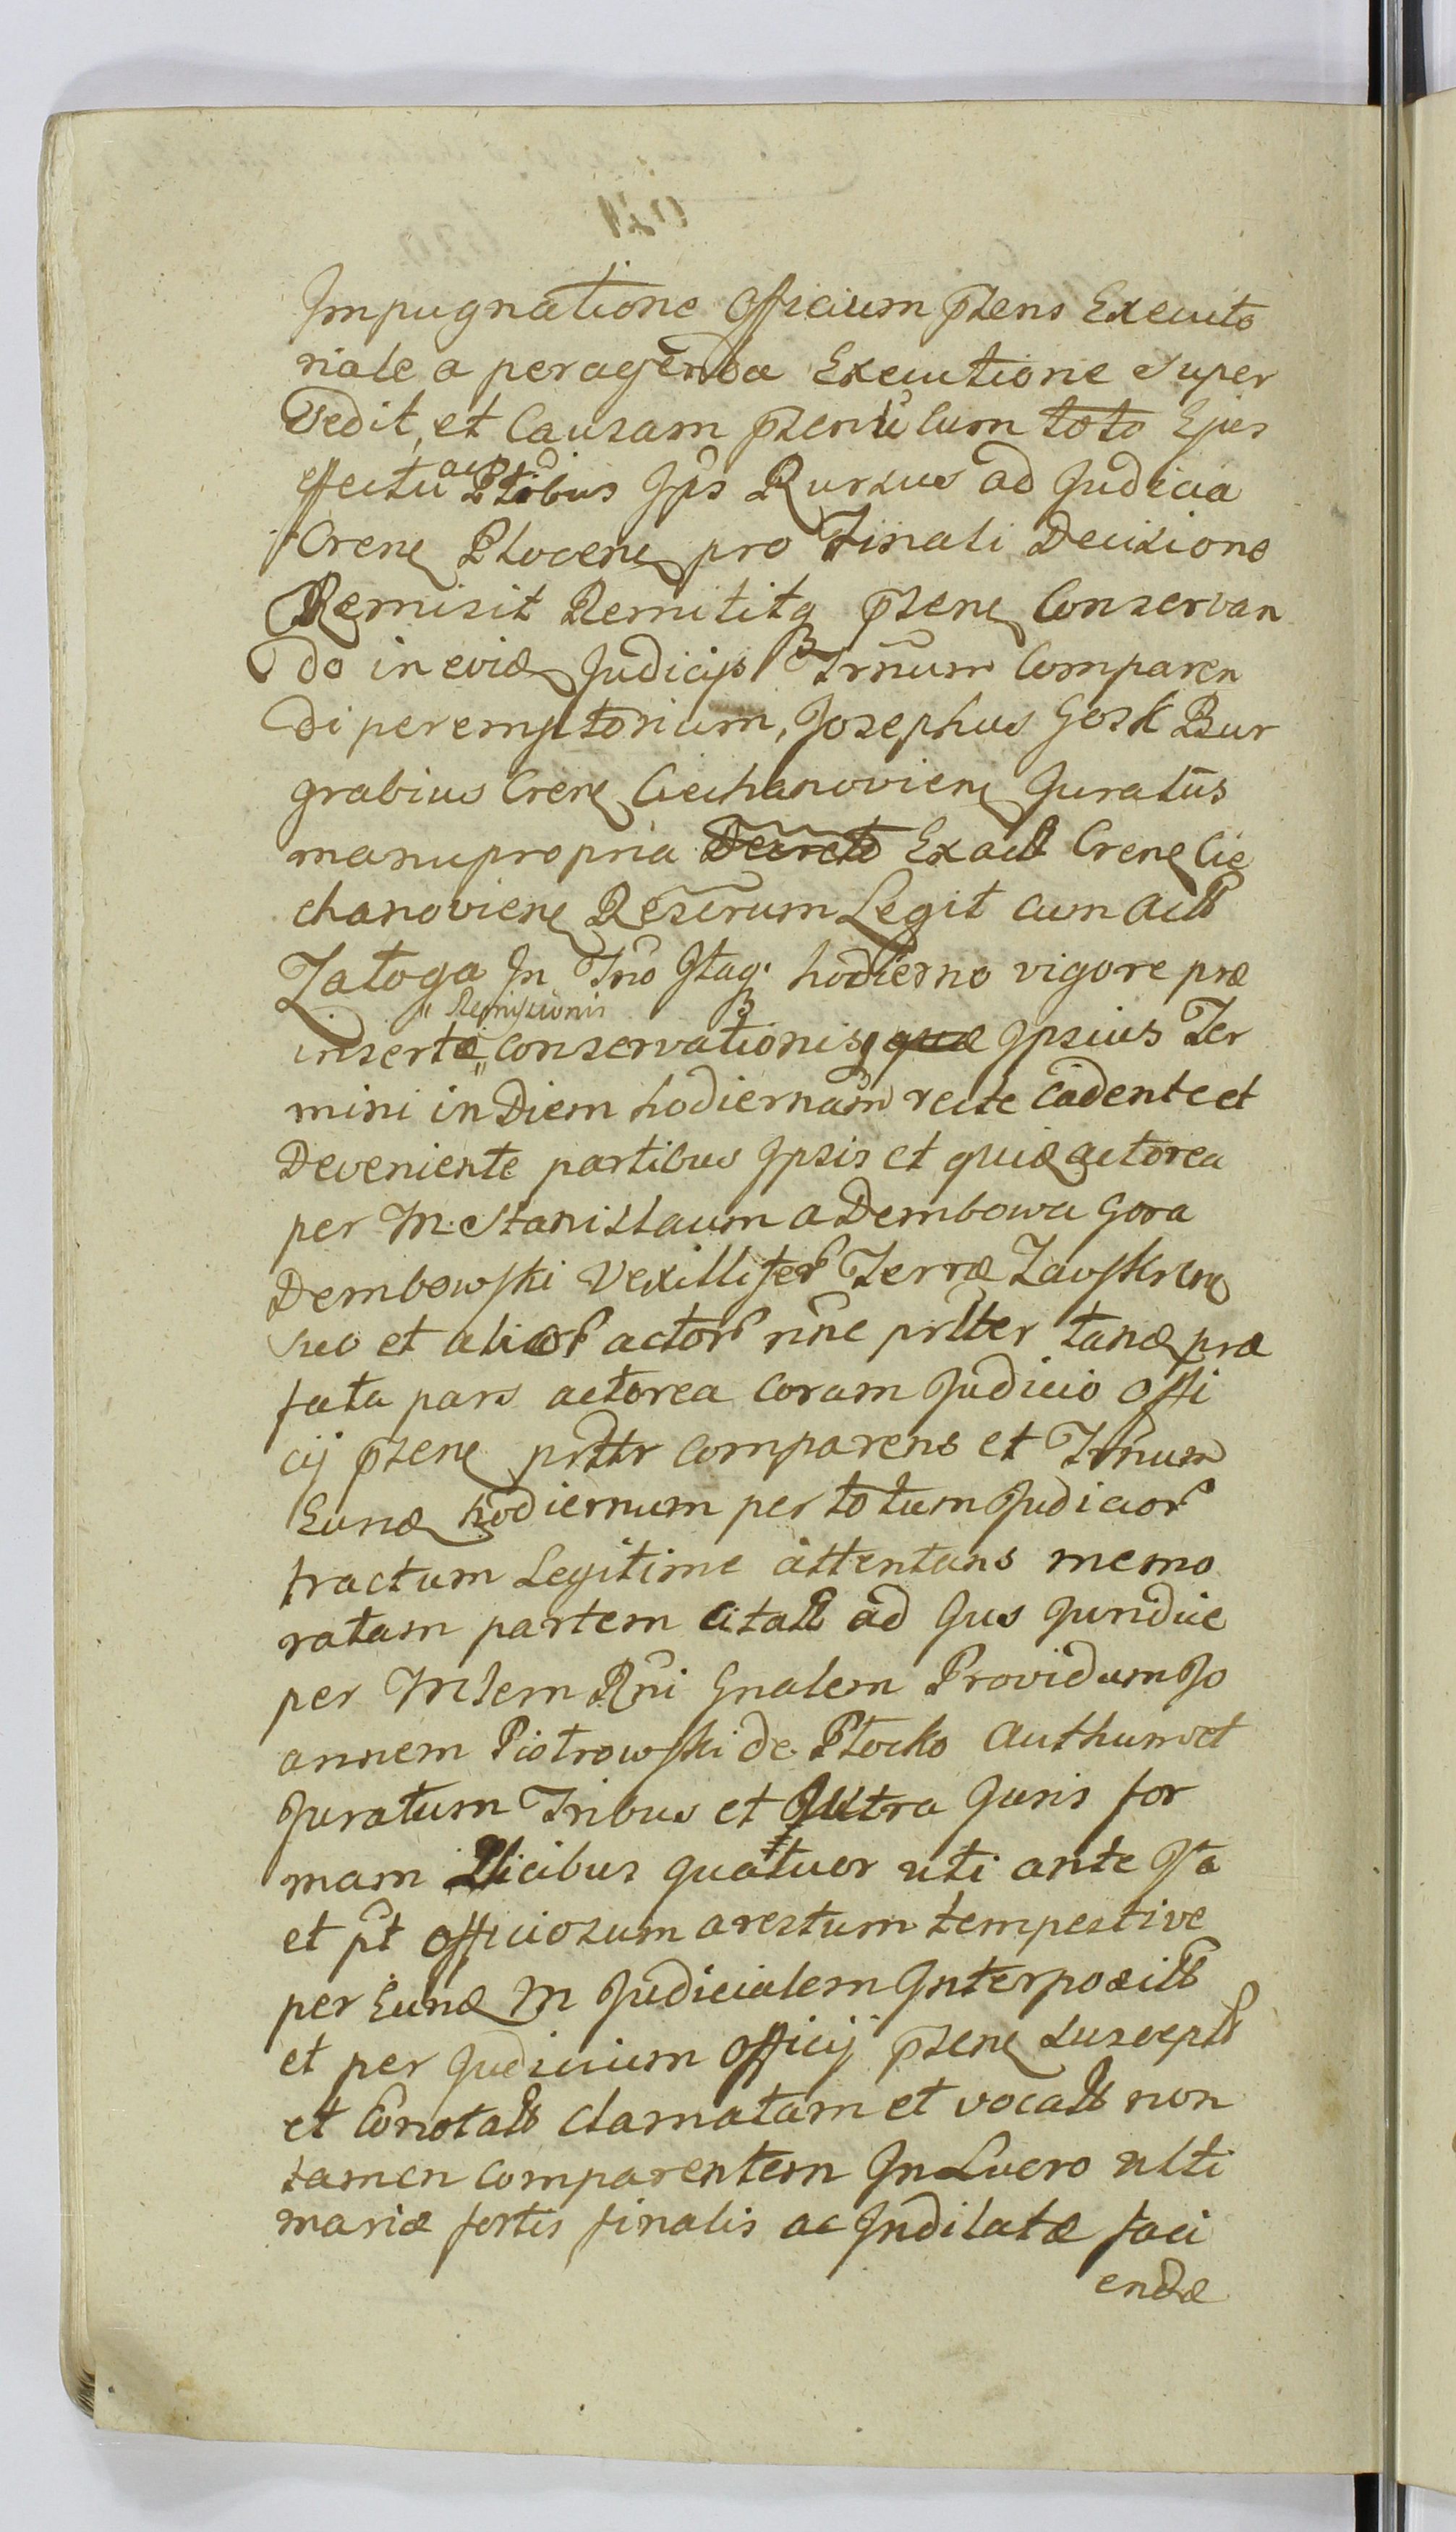 Impugnatione Officium p̃sens Executo
riale a peragenda Executione super
Sedit, et Causam p̃sentẽ cum toto Ejus
effectu ac Ptibus Jps Rursus ad Judicia
Crenẽ Plocenẽ pro Finali Decisione
Remisit Remititq p̃senẽ Conservan
do in eisdẽ Judicijs Trnũm Comparen
di peremptorium, Josephus Gosk Bur
grabius Crenẽ Ciechanovienẽ Juratus
manupropria Decreto Ex actt Crenẽ Cie
chanovienẽ Rescrum Legit cum actt
Załoga In Trno Itaq hodierno vigore præ
Remissionis
insertæ conservationisq quæ Ipsius Ter
mini in Diem hodiernam recte cadente et
Deveniente partibus Jpsis et quidẽ actorea
per M. Stanislaum a Dembowa Gora
Dembowski Vexilliferũ Terræ Zawskrenẽ
suo et alior actorũ nñe prltter tandẽ præ
fata pars actorea coram Judicio Offi
cij p̃senẽ prlttr comparens et Trnum
Eundẽ hodiernum per totum Judiciorũ
tractum Legitime attentans memo
ratam partem Citatt ad Jus Juridice
per Mlem Rñi Gnalem Providum Jo
annem Piotrowski de Płocko Authum et
Juratum Tribus et Juxtra Juris for
mam Vicibus quatuor uti ante Jta
et p̃t officiosum arestum tempestive
per Eundẽ M Judicialem Interpositt
et per Judicium Officij p̃senẽ susceptt
et Conotatt clamatam et vocatt non
tamen comparentem In Lucro ulti
mariæ sortis finalis ac Indilatæ faci
endæ